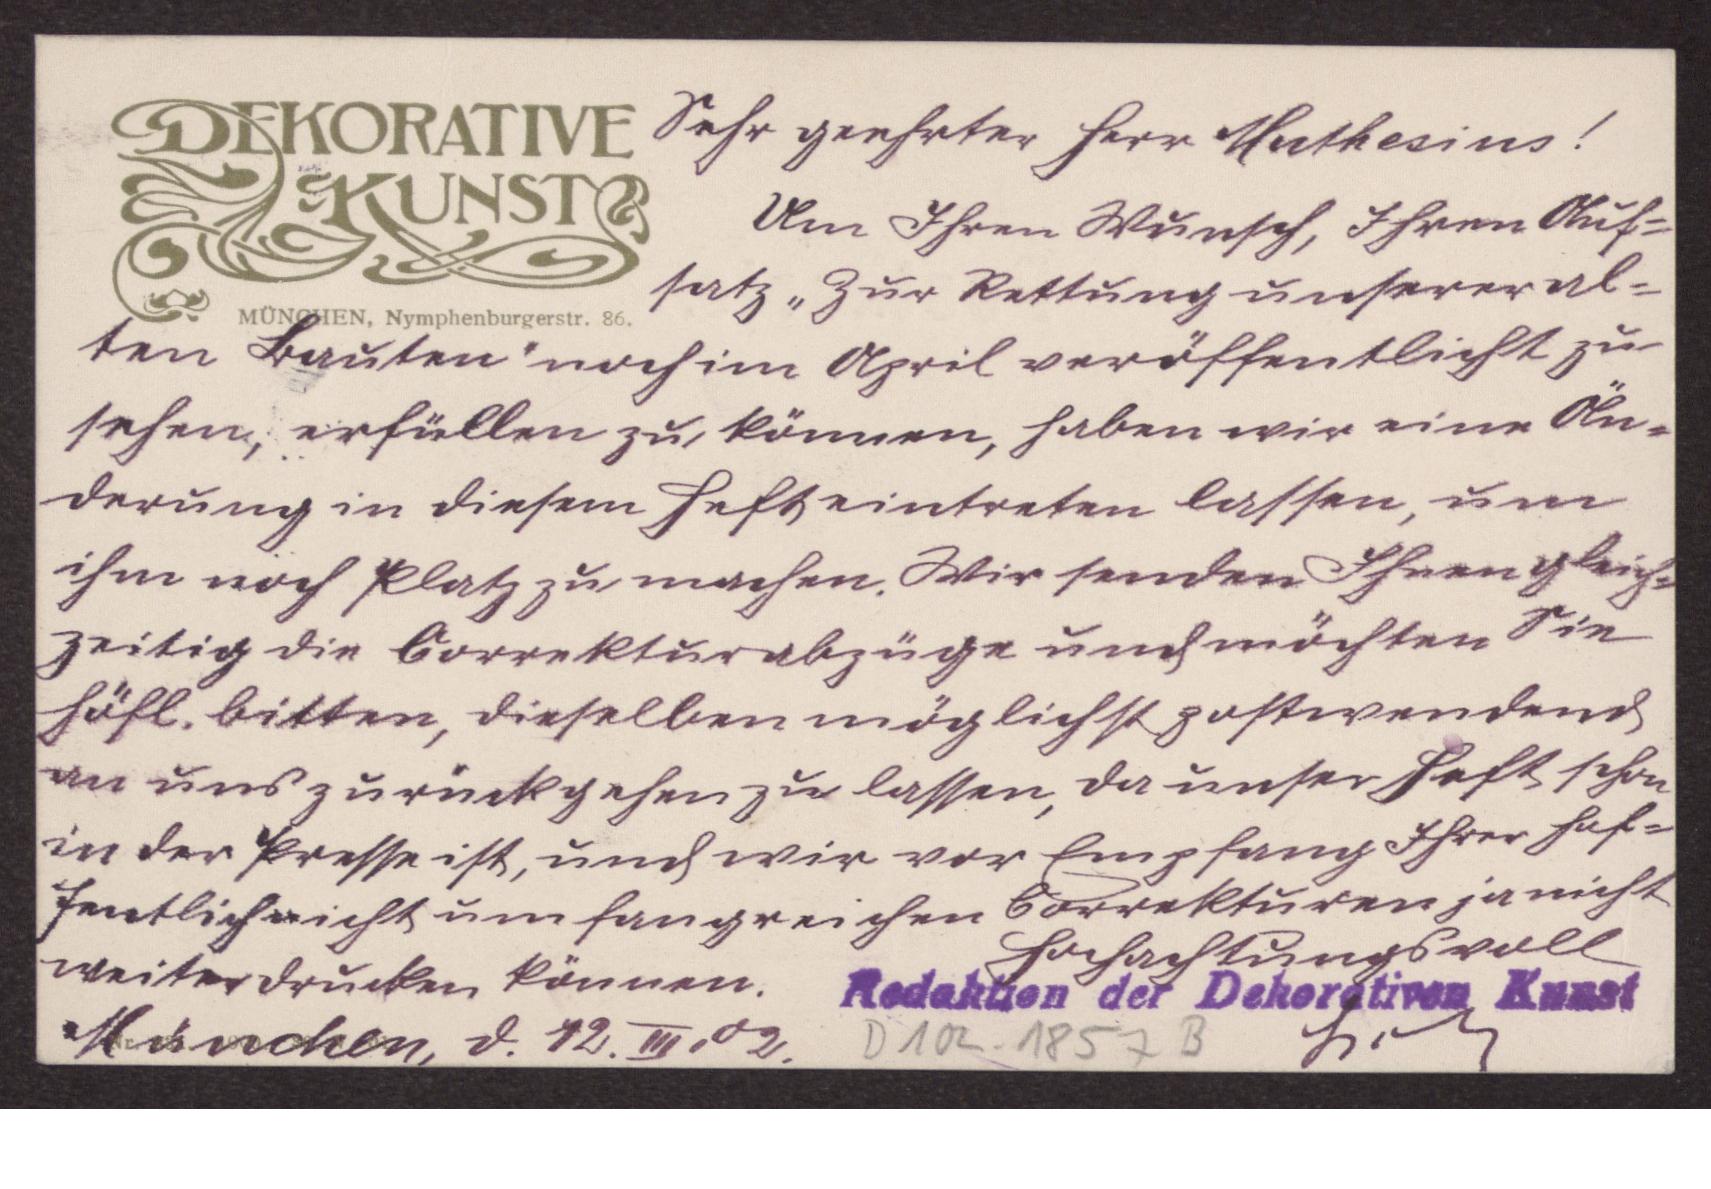 DEKORATIVE
KUNST
MÜNCHEN, Nymphenburgerstr. 86.
Sehr geehrter Herr Muthesius!
Um Ihren Wunsch, Ihren Auf-
satz „Zur Rettung unserer al-
ten Bauten" noch im April veröffentlicht zu
sehen, erfüllen zu können, haben wir eine Än-
derung in diesem Heft eintreten lassen, um
ihm noch Platz zu machen. Wir senden Ihnen gleich-
zeitig die Correkturabzüge und möchten Sie
höfl. bitten, dieselben möglichst postwendend
an uns zurückgehen zu lassen, da unser Heft schon
in der Presse ist, und wir vor Empfang Ihrer hof-
fentlich nicht umfangreichen Correkturen ja nicht
weiterdrucken können.
Hochachtungsvoll
Redaktion der Dekorativen Kunst
München, d. 12. III. 02.
D 102-1857 B